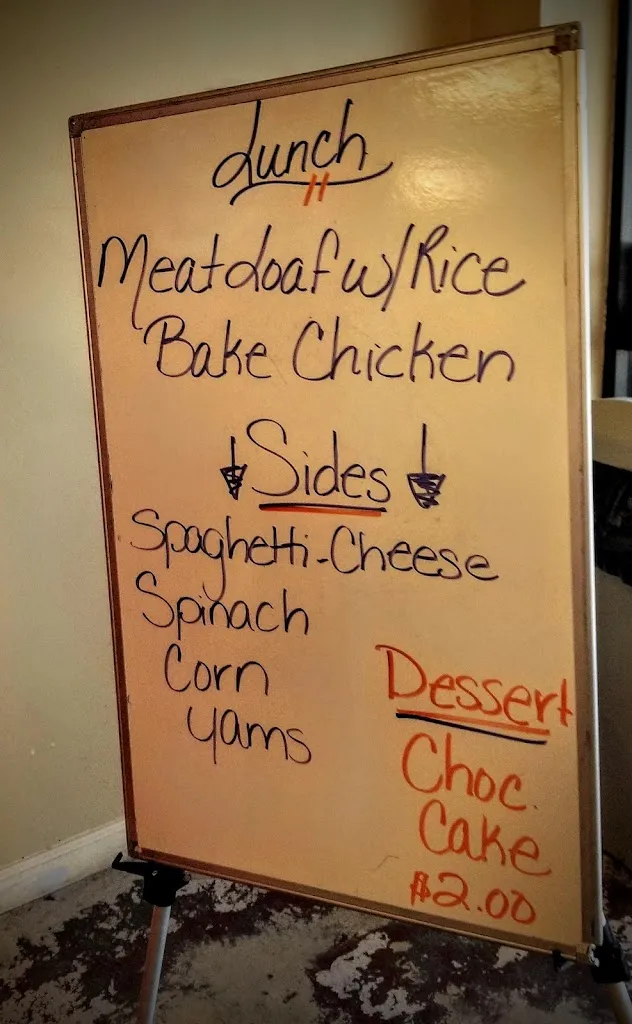 Lunch
Meatloaf w/Rice
Bake Chicken
Sides
Spaghetti-Cheese
Spinach
Corn
Yams
Dessert
Choc.
Cake
$2.00